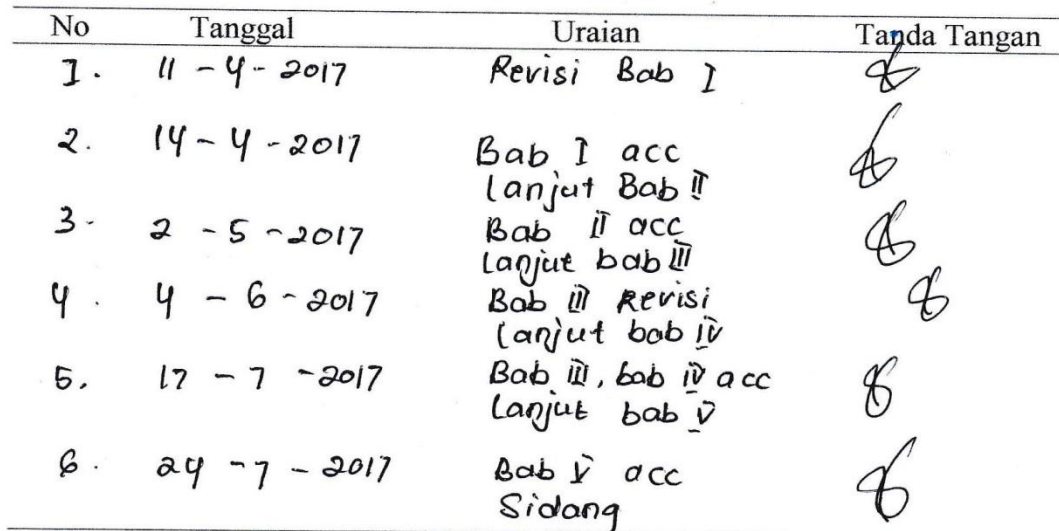 No Tanggal Uraian Tanda Tangan
1. 11 - 4 - 2017 Revisi Bab I
2. 14 - 4 - 2017 Bab I acc
Lanjut Bab II
3. 2 - 5 - 2017 Bab II acc
Lanjut bab III
4. 4 - 6 - 2017 Bab III Revisi
Lanjut bab IV
5. 17 - 7 - 2017 Bab III, bab IV acc
Lanjut bab V
6. 24 - 7 - 2017 Bab V acc
Sidang